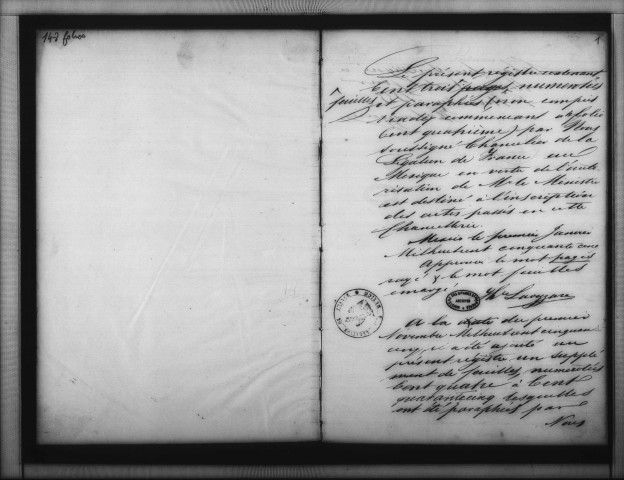 147 folios
1
Le présent registre contenant
Cent trois pages numérotées
feuilles
et paraphées (non compris
commencant au folio
Cent quatrième) par Nous
soussigné Chancelier de la
Légation de France au
Mexique en vertu de l'auto
risation de Mr le Ministre
est destiné à l'inscription
des actes passés en cette
Chancellerie.
Mexico le premier Janvier
Mil huit cent cinquante cinq
Approuvé le mot pages
rayé & le mot feuilles
émargé
A la date du premier
Novembre Mil huit cent cinquante
cinq, il a été ajouté au
présent registre un supplé
ment de feuilles numérotées
Cent quatre à Cent
quarante cinq lesquelles
ont été paraphées par
Nous